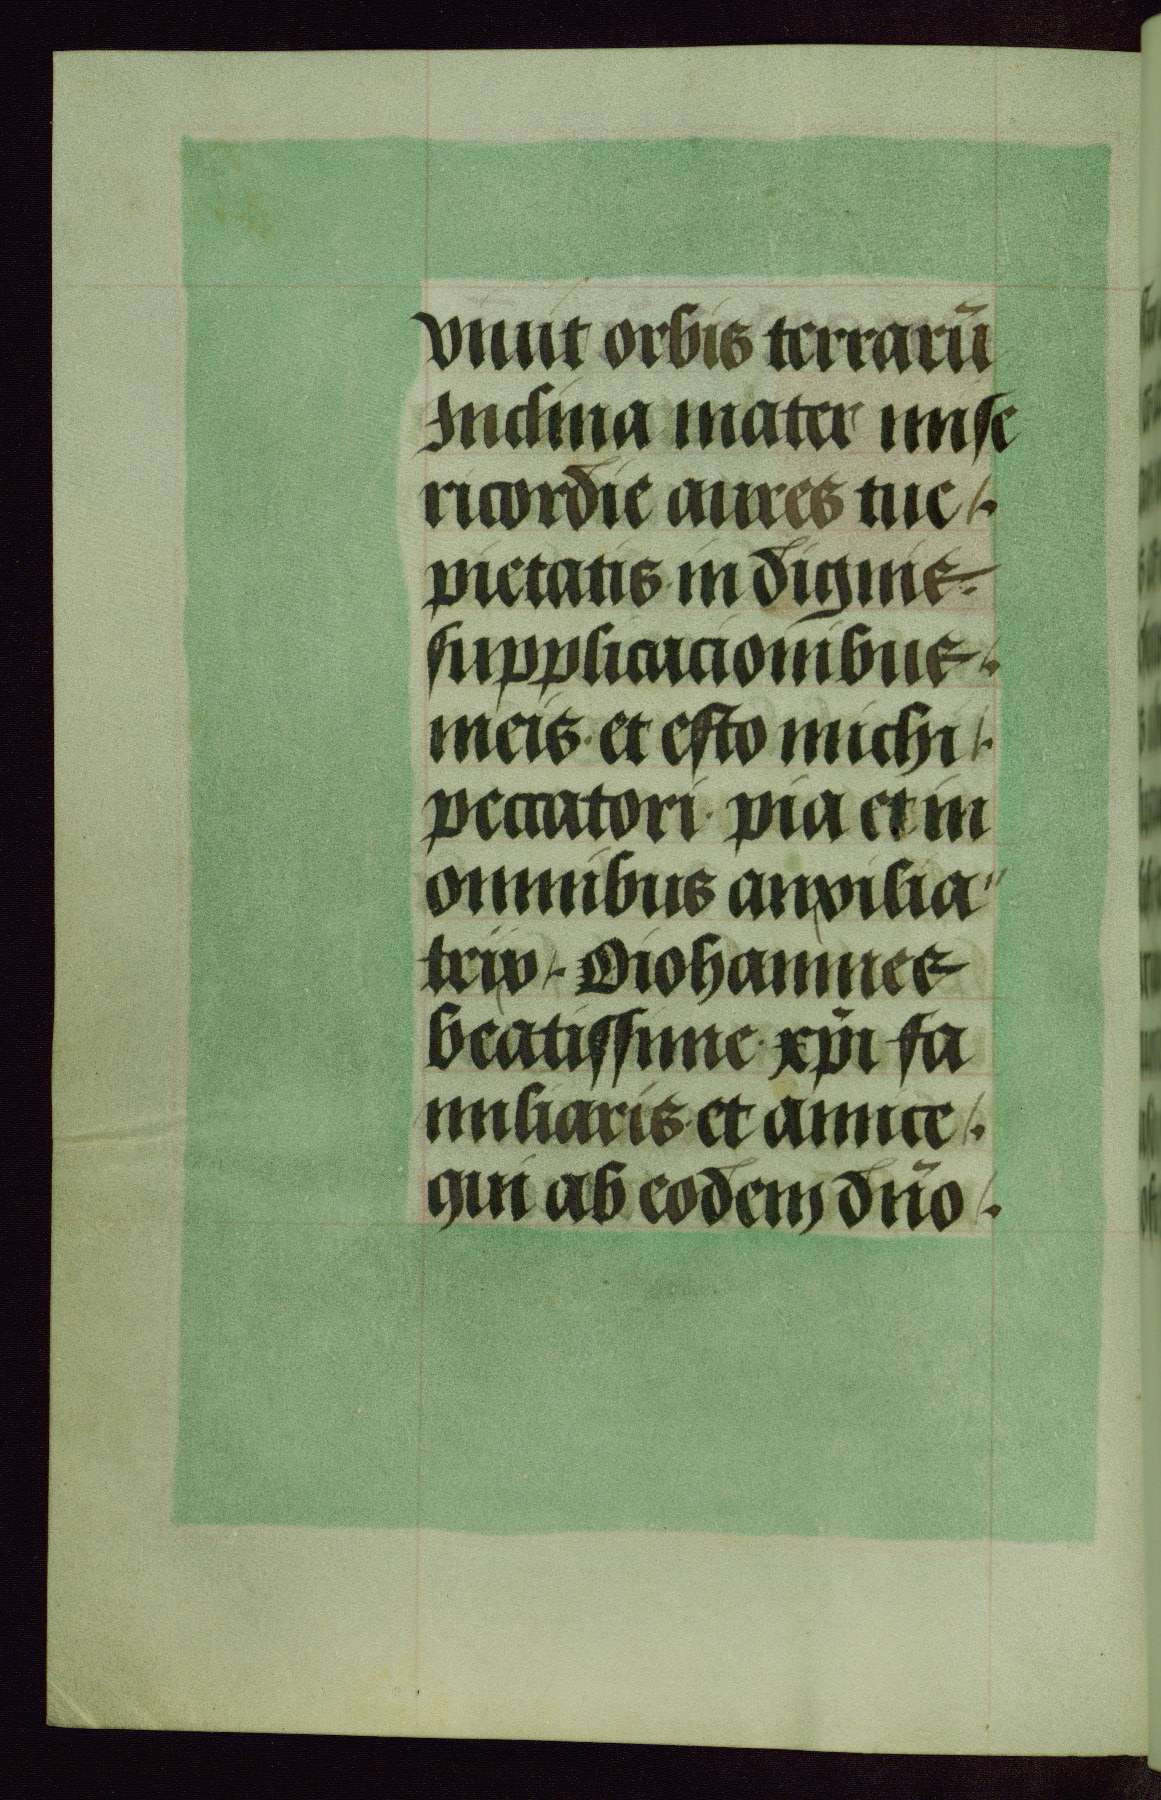 viuit orbis terrarū
Inclina mater mise
ricordie aures tue
pietatis in dignis
supplicacionibus
meis · et esto michi
peccatori · pia et in
omnibus auxilia
trix · O iohannes
beatissime · xp̄i fa
miliaris · et amice
qui ab eodem dn̄o